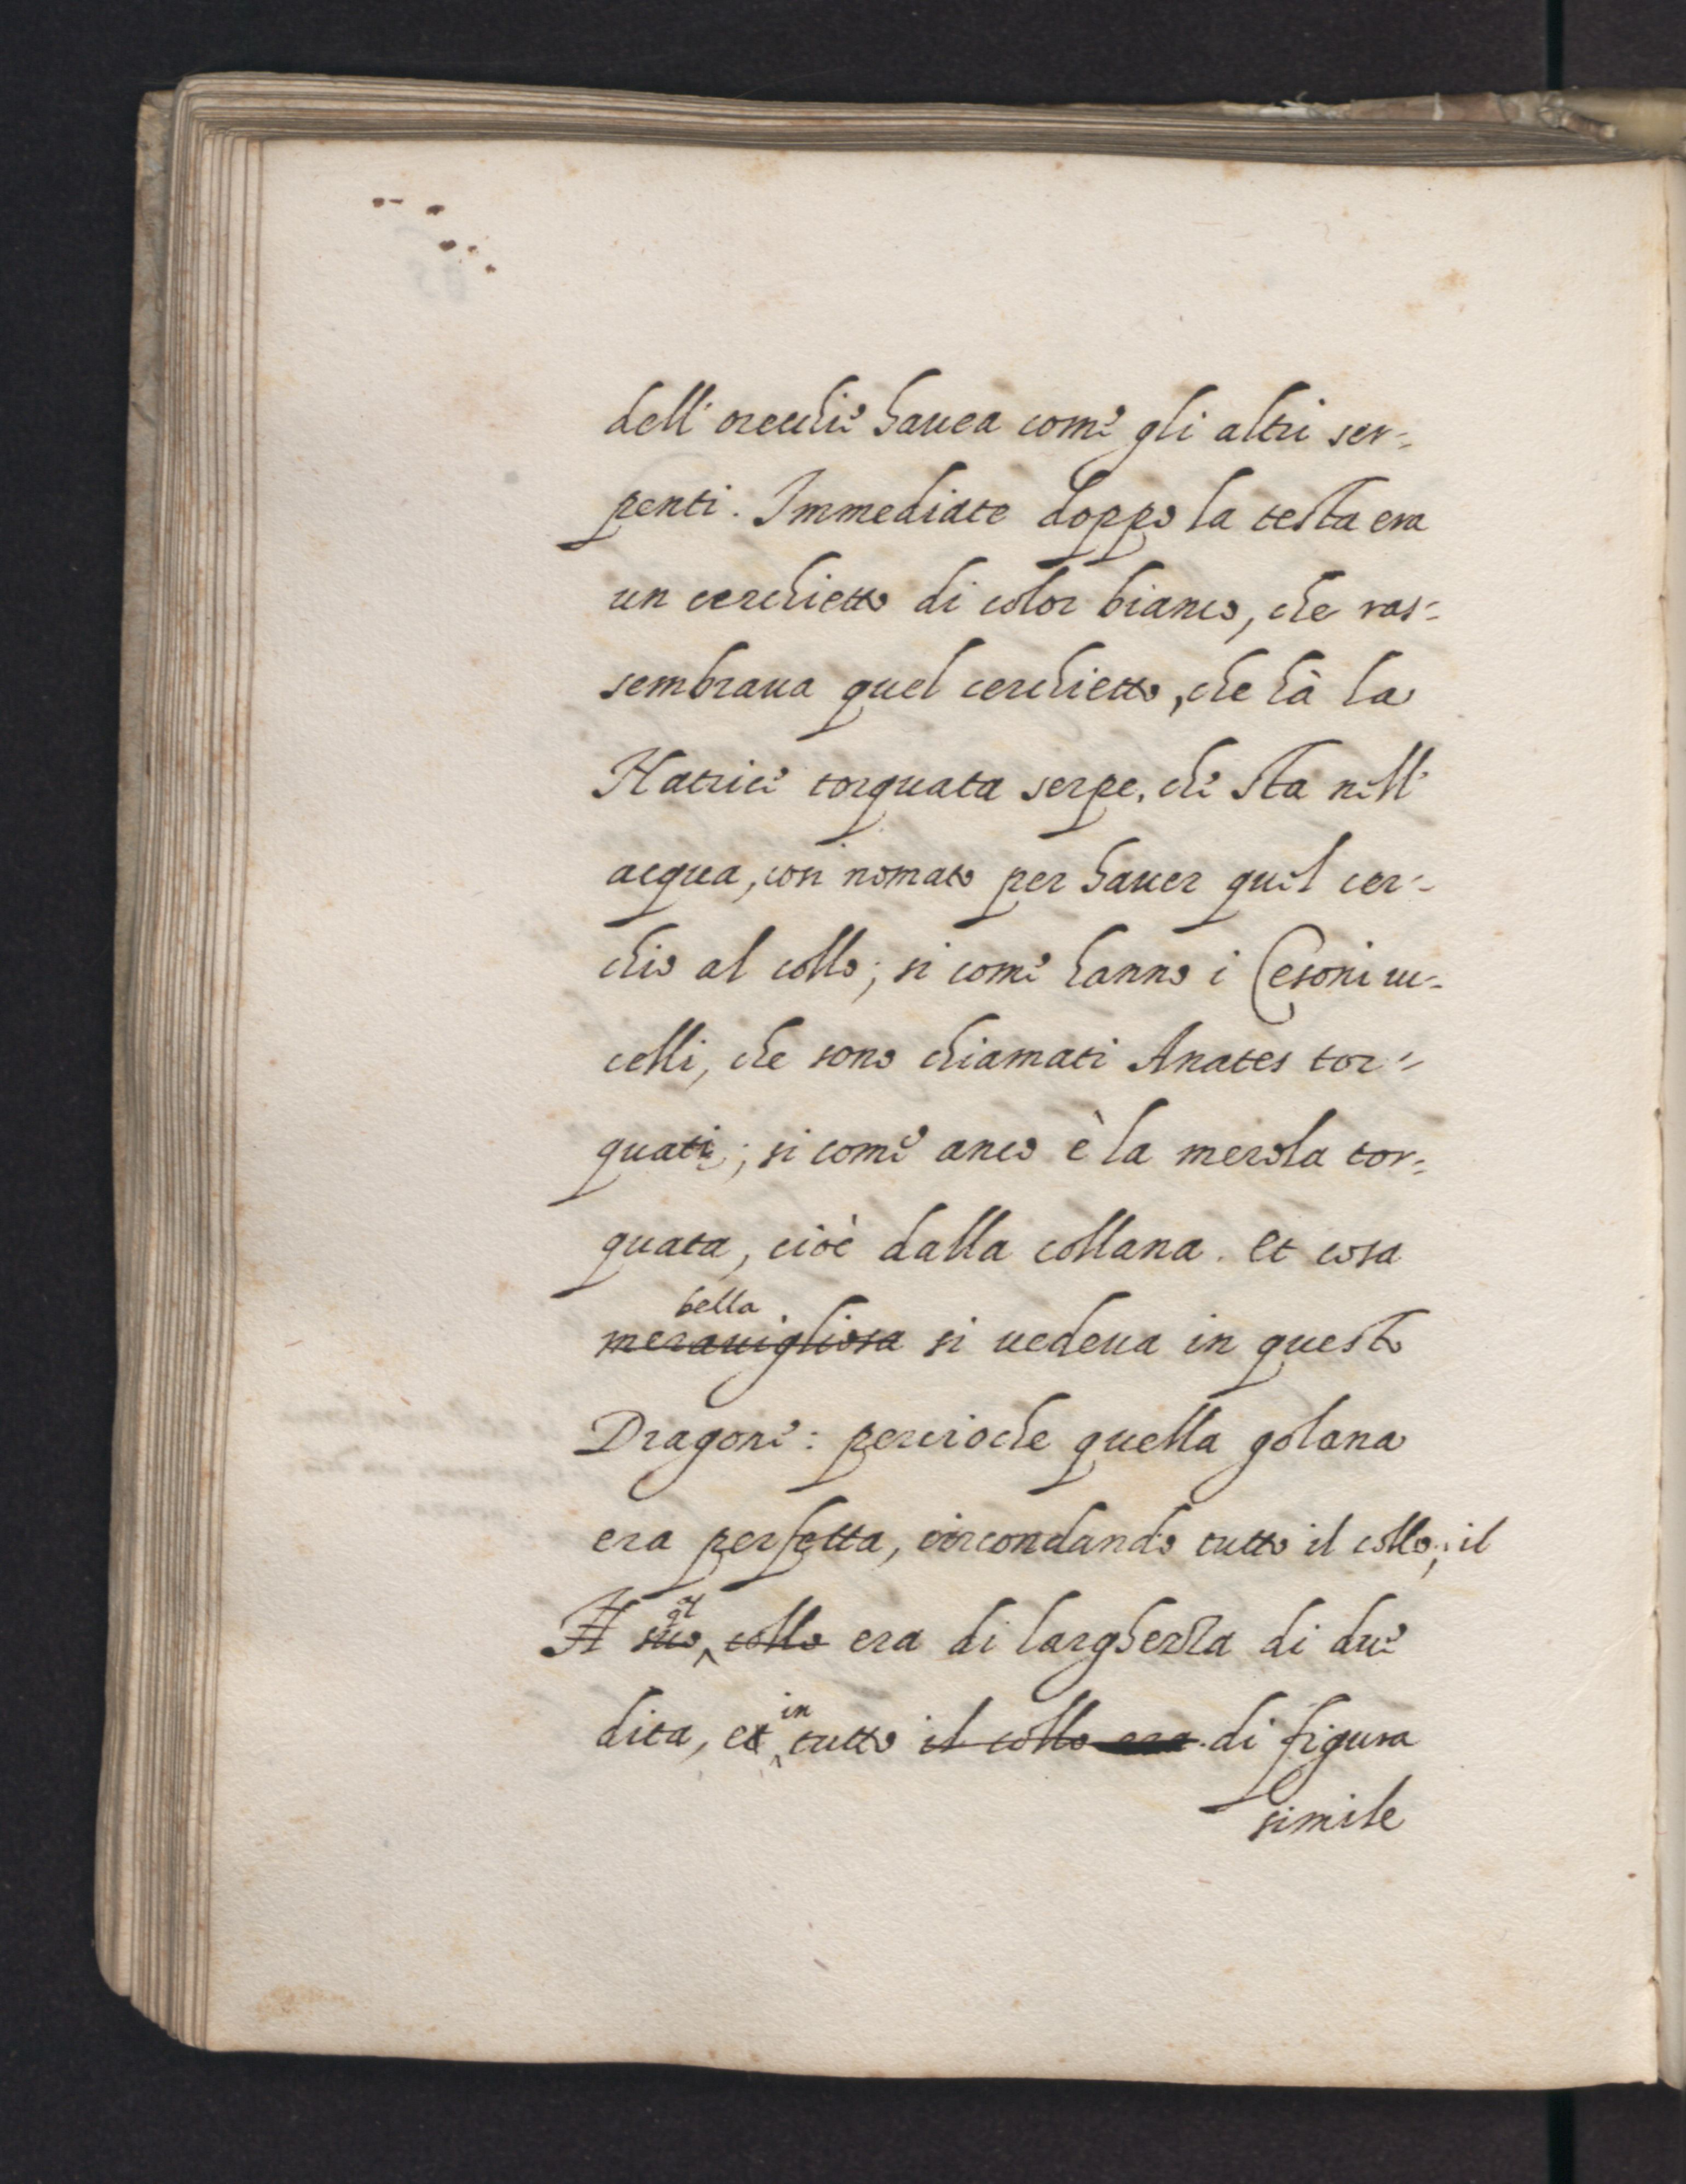 dell' orecchie hauea come gli altri ser-
penti. Immediate doppo la testa era
un cerchietto di color bianco, che ras-
sembraua quel cerchietto, che hà la
Natrice torquata serpe, che sta nell'
acqua, così nomato per hauer quel cer-
chio al collo; si come hanno i Cesoni uc-
celli, che sono chiamati Anates tor-
quati; si come anco è la merola tor-
quata, cioè dalla collana. et cosa
bella
merauigliosa si uedeua in questo
Dragone: percioche quella golana
era perfetta, circondando tutto il collo; il
Il suo ql collo era di larghezza di due
dita, et in tutto il collo era di figura
simile